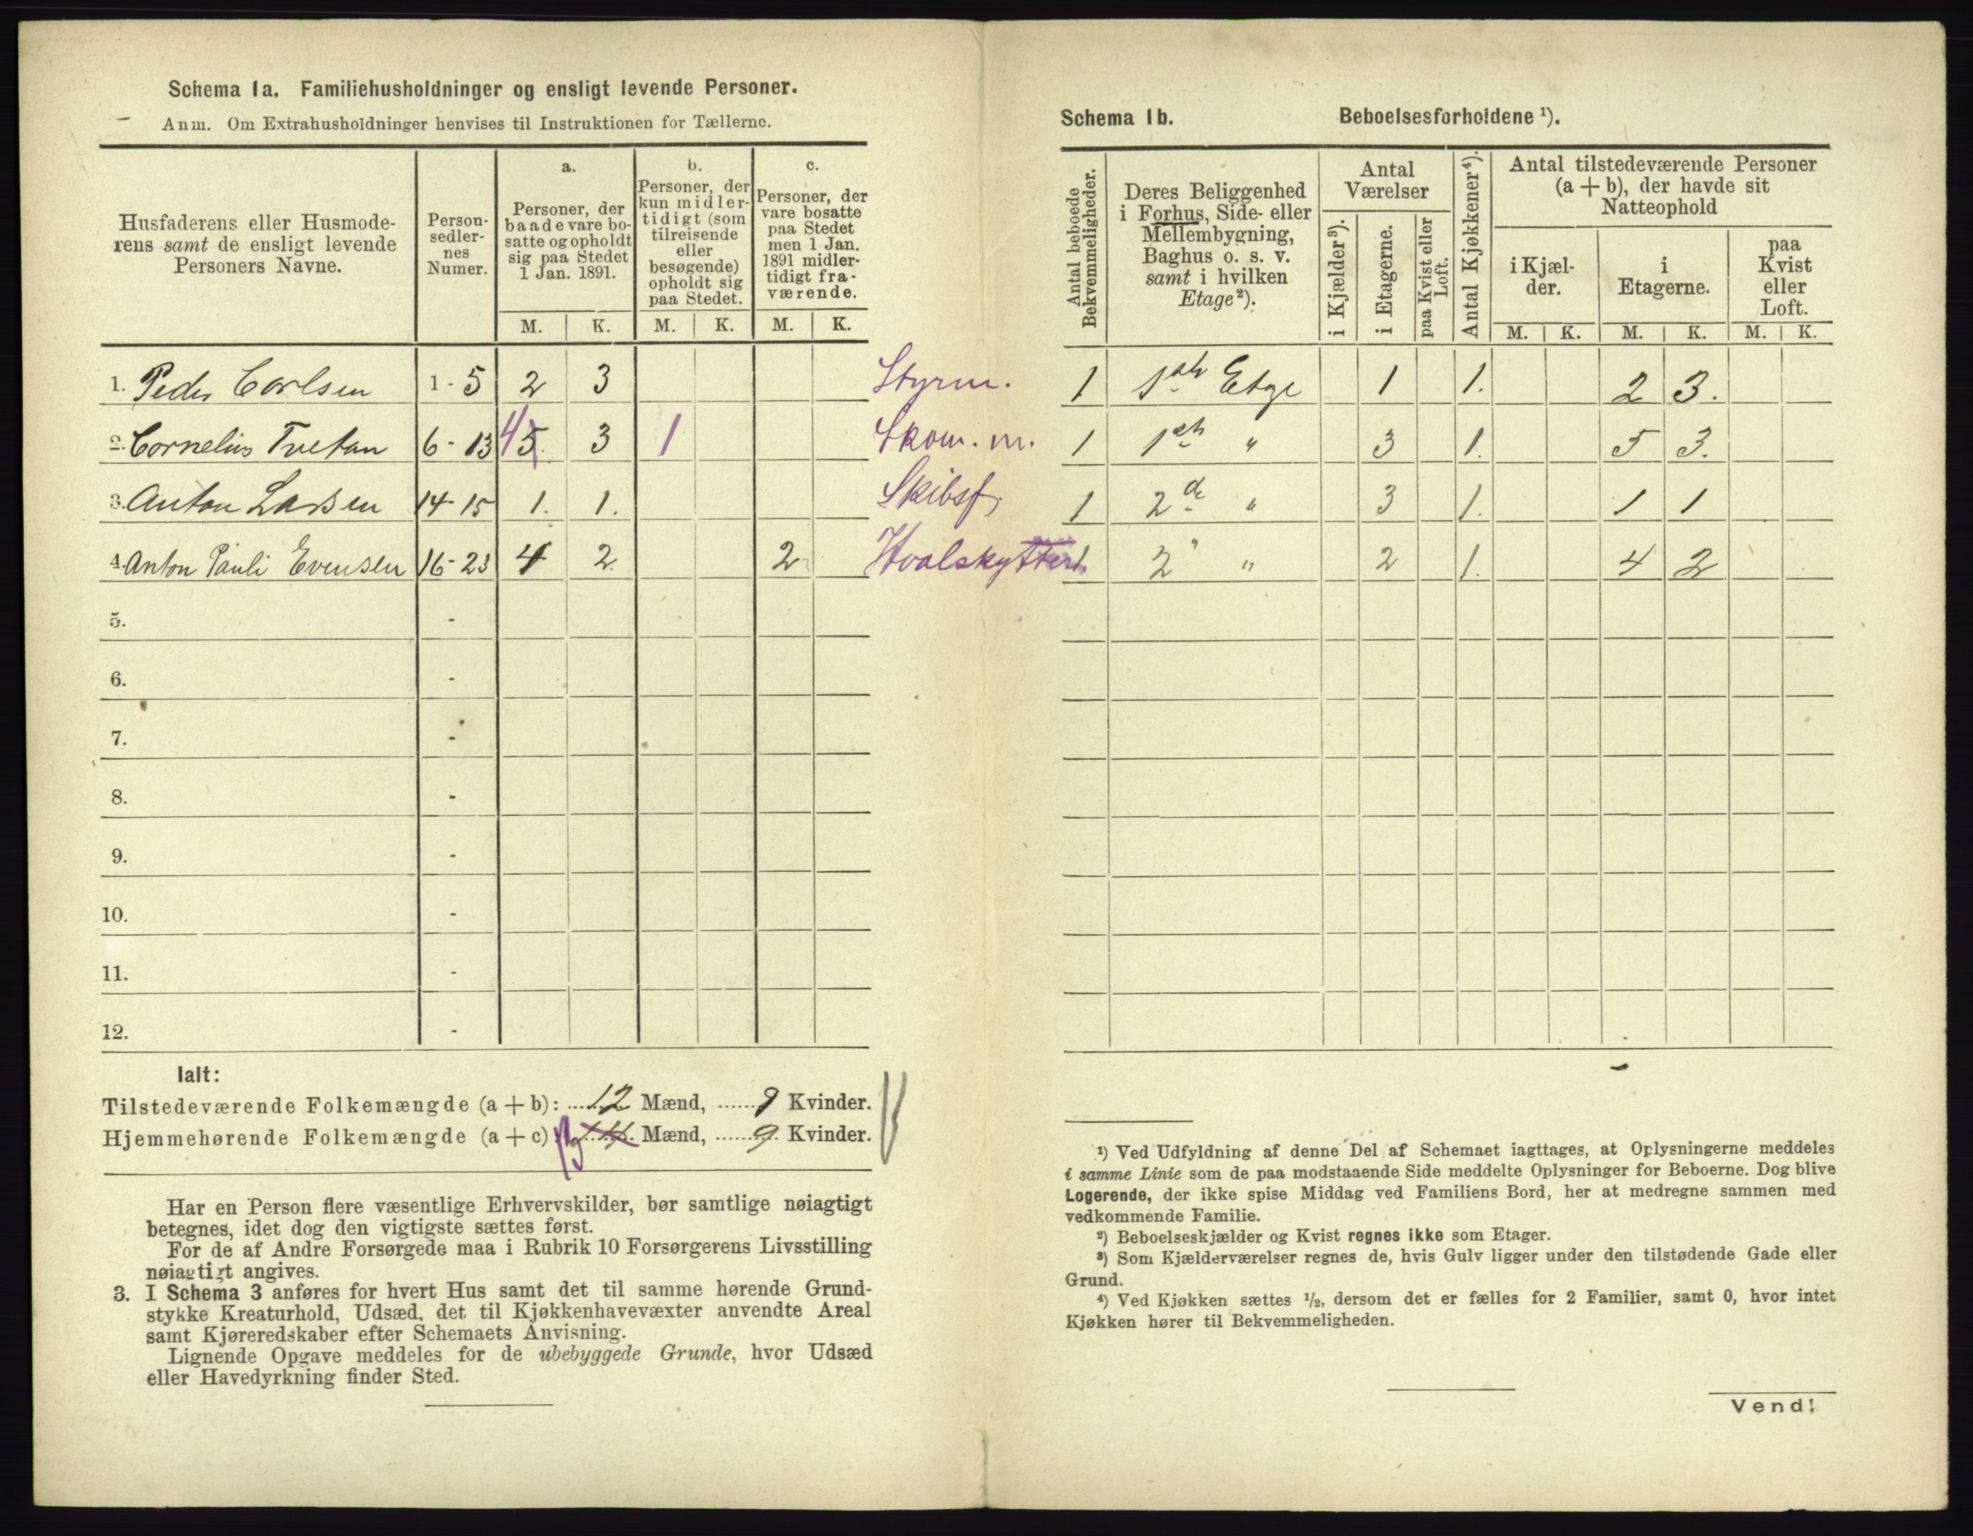 Schema 1a. Familiehusholdninger og ensligt levende Personer.
Anm. Om Extrahusholdninger henvises til Instruktionen for Tællerne.
Husfaderens eller Husmoderens samt de ensligt levende Personers Navne.
Personsedlernes Numer.
a.
Personer, der baade vare bosatte og opholdt sig paa Stedet 1 Jan. 1891.
b.
Personer, der kun midlertidigt (som tilreisende eller besøgende) opholdt sig paa Stedet.
c.
Personer, der vare bosatte paa Stedet men 1 Jan. 1891 midlertidigt fraværende.
M. K. M. K. M. K.
1. Peder Carlsen 1-5 2 3 Styrm.
2. Cornelius Tvetan 6-13 4 5 3 1 Skom. m.
3. Anton Larsen 14-15 1. 1. Skibsf.
4. Anton Pauli Evensen 16-23 4 2 2 Hvalskytter
5. -
6. -
7. -
8. -
9. -
10. -
11. -
12. -
Ialt:
Tilstedeværende Folkemængde (a + b): 12 Mænd, 9 Kvinder.
Hjemmehørende Folkemængde (a + c): 13 14 Mænd, 9 Kvinder.
Har en Person flere væsentlige Erhvervskilder, bør samtlige nøiagtigt
betegnes, idet dog den vigtigste sættes først.
For de af Andre Forsørgede maa i Rubrik 10 Forsørgerens Livsstilling
nøiagtigt angives.
3. I Schema 3 anføres for hvert Hus samt det til samme hørende Grund-
stykke Kreaturhold, Udsæd, det til Kjøkkenhavevæxter anvendte Areal
samt Kjøreredskaber efter Schemaets Anvisning.
Lignende Opgave meddeles for de ubebyggede Grunde, hvor Udsæd
eller Havedyrkning finder Sted.
Schema 1b. Beboelsesforholdene ¹).
Antal beboede Bekvemmeligheder.
Deres Beliggenhed i Forhus, Side- eller Mellembygning, Baghus o. s. v. samt i hvilken Etage²).
Antal Værelser
i Kjælder³).
i Etagerne.
paa Kvist eller Loft.
Antal Kjøkkener⁴).
Antal tilstedeværende Personer
(a + b), der havde sit
Natteophold
i Kjælder.
i Etagerne.
paa Kvist eller Loft.
M. K. M. K. M. K.
1 1ste Etage 1 1. 2 3.
1 1ste " 3 1. 5 3.
1 2de " 3 1. 1 1
1. 2" " 2 1. 4 2
¹) Ved Udfyldning af denne Del af Schemaet iagttages, at Oplysningerne meddeles
i samme Linie som de paa modstaaende Side meddelte Oplysninger for Beboerne. Dog blive
Logerende, der ikke spise Middag ved Familiens Bord, her at medregne sammen med
vedkommende Familie.
²) Beboelseskjælder og Kvist regnes ikke som Etager.
³) Som Kjælderværelser regnes de, hvis Gulv ligger under den tilstødende Gade eller
Grund.
⁴) Ved Kjøkken sættes ½, dersom det er fælles for 2 Familier, samt 0, hvor intet
Kjøkken hører til Bekvemmeligheden.
Vend!